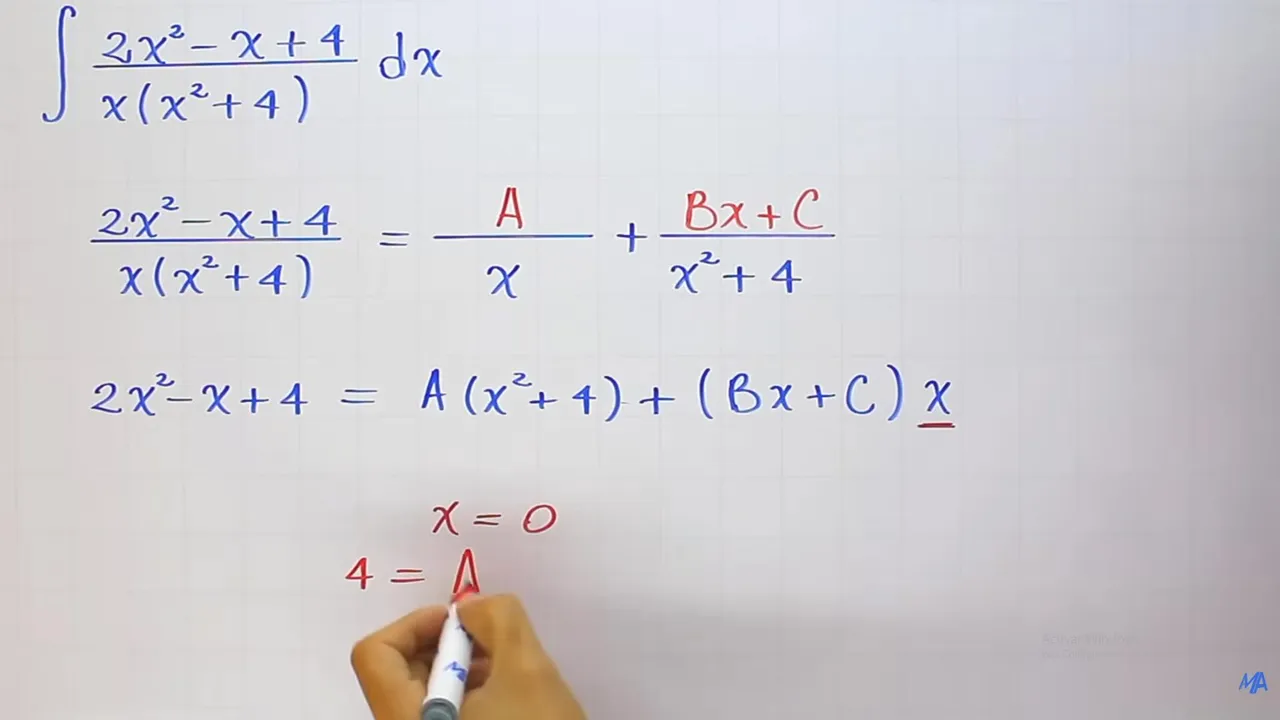 ∫ 2x² - x + 4 / x(x² + 4) dx
2x² - x + 4 / x(x² + 4) = A / x + Bx + C / x² + 4
2x² - x + 4 = A(x² + 4) + (Bx + C) x
x = 0
4 = A
MA